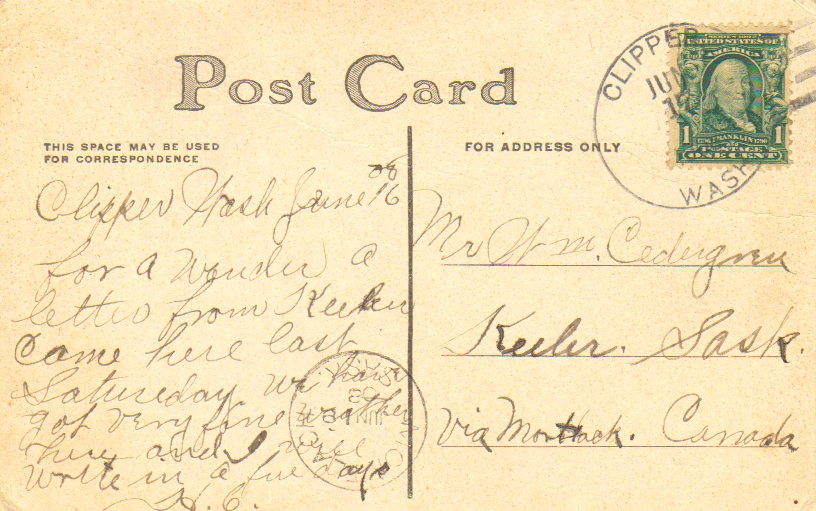 Post Card
THIS SPACE MAY BE USED
FOR CORRESPONDENCE
FOR ADDRESS ONLY
CLIPPER
JUN
17
WASH
SERIES 1902
UNITED STATES OF
AMERICA
1 FRANKLIN 1
POSTAGE
ONE CENT
08
Clipper Wash June 16
for a Wonder a
letter from Keeler
Came here last
Saturday We have
got very fine weather
here and I will
write in a few days
Mr Wm. Cedergren
Keeler. Sask.
via Mortlach. Canada
JUN